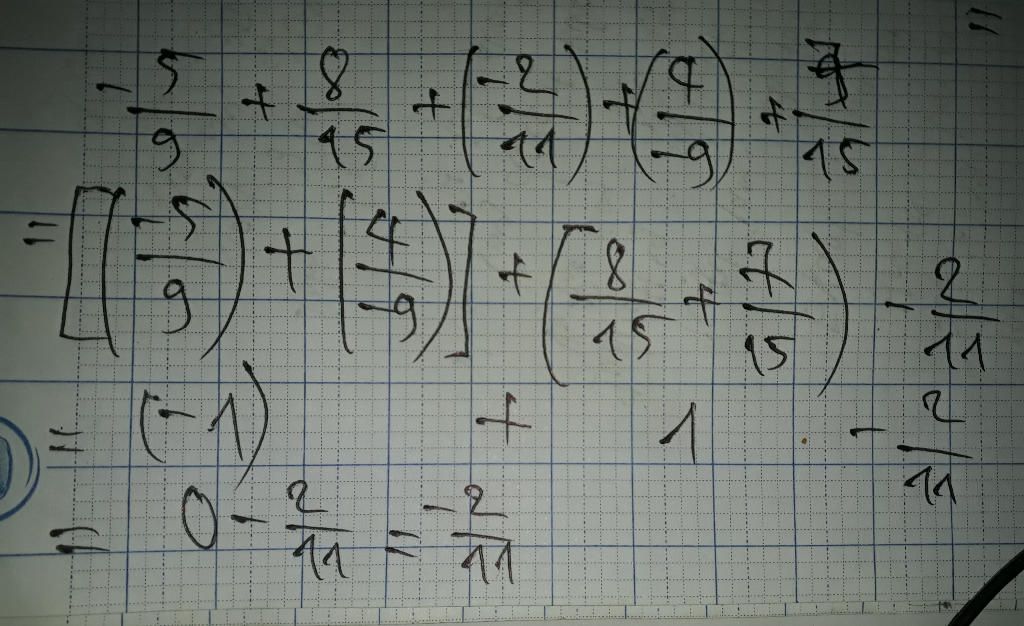 =
-5/9 + 8/15 + (-2/11) + (4/-9) + 7/15
= [(-5/9) + (4/-9)] + (8/15 + 7/15) - 2/11
= (-1) + 1 - 2/11
= 0 - 2/11 = -2/11